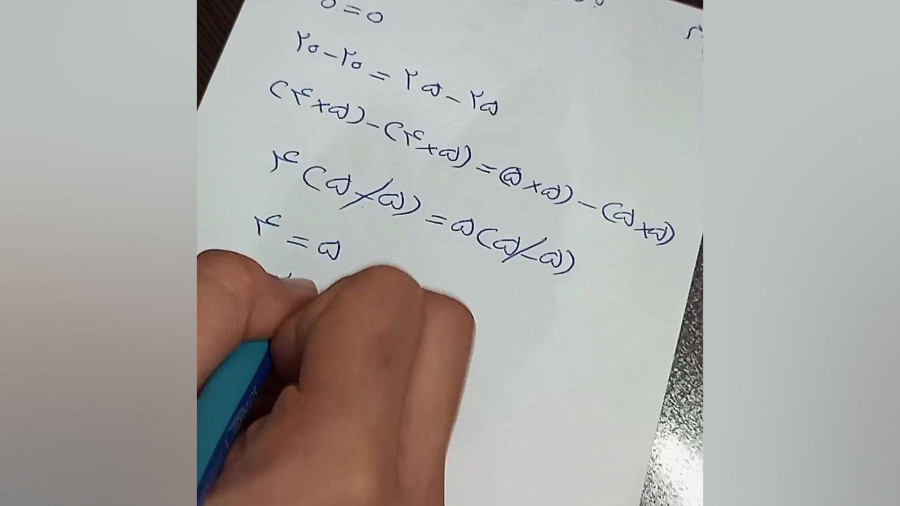 ۰ = ۰
۲۰ - ۲۰ = ۲۵ - ۲۵
(۴×۵) - (۴×۵) = (۵×۵) - (۵×۵)
۴(۵-۵) = ۵(۵-۵)
۴ = ۵